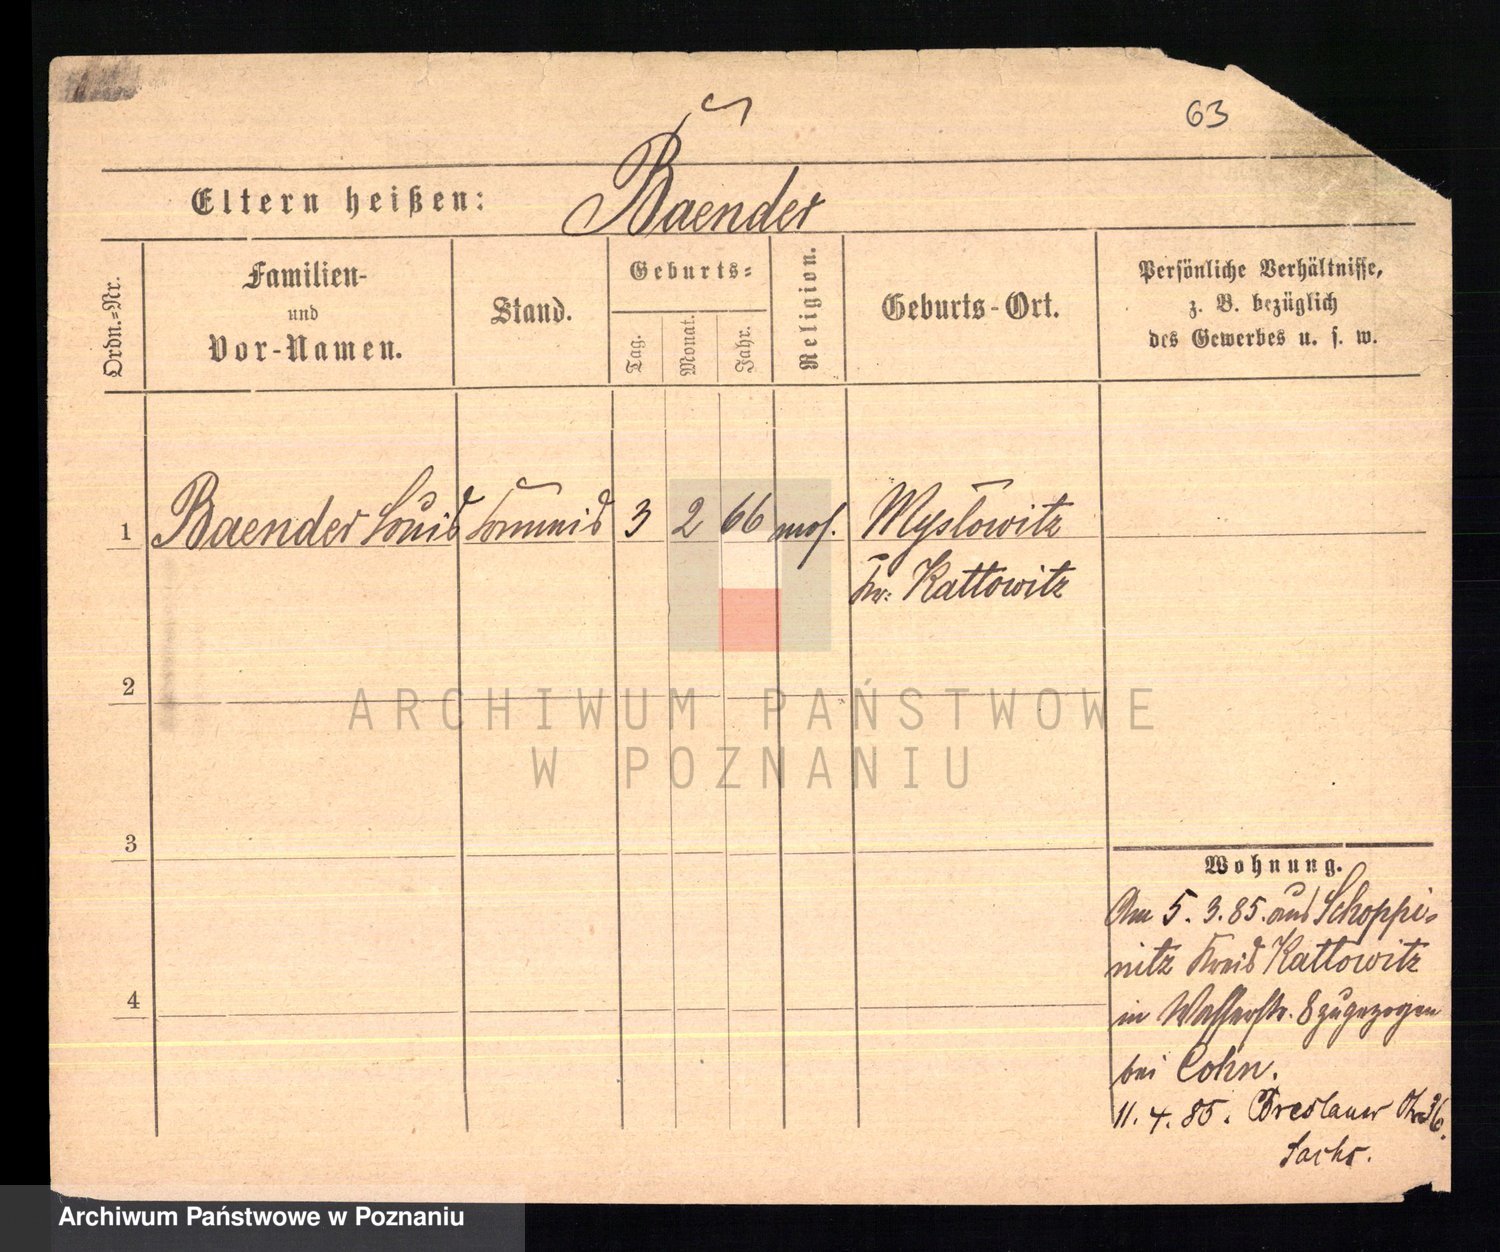 63
Eltern heißen: Baender
Ordn.=Nr.
Familien-
und
Vor-Namen.
Stand.
Geburts=
Tag.
Monat.
Jahr.
Religion.
Geburts-Ort.
Persönliche Verhältnisse,
z. B. bezüglich
des Gewerbes u. s. w.
1 Baender Louis Commis 3 2 66 mos. Myslowitz
Kr: Kattowitz
2
3
4
Wohnung.
Am 5. 3. 85. aus Schoppi-
nitz Kreis Kattowitz
in Wasserstr. 8 zugezogen
bei Cohn.
11. 4. 85. Breslauer Str. 36.
Sachs.
ARCHIWUM PAŃSTWOWE
W POZNANIU
Archiwum Państwowe w Poznaniu